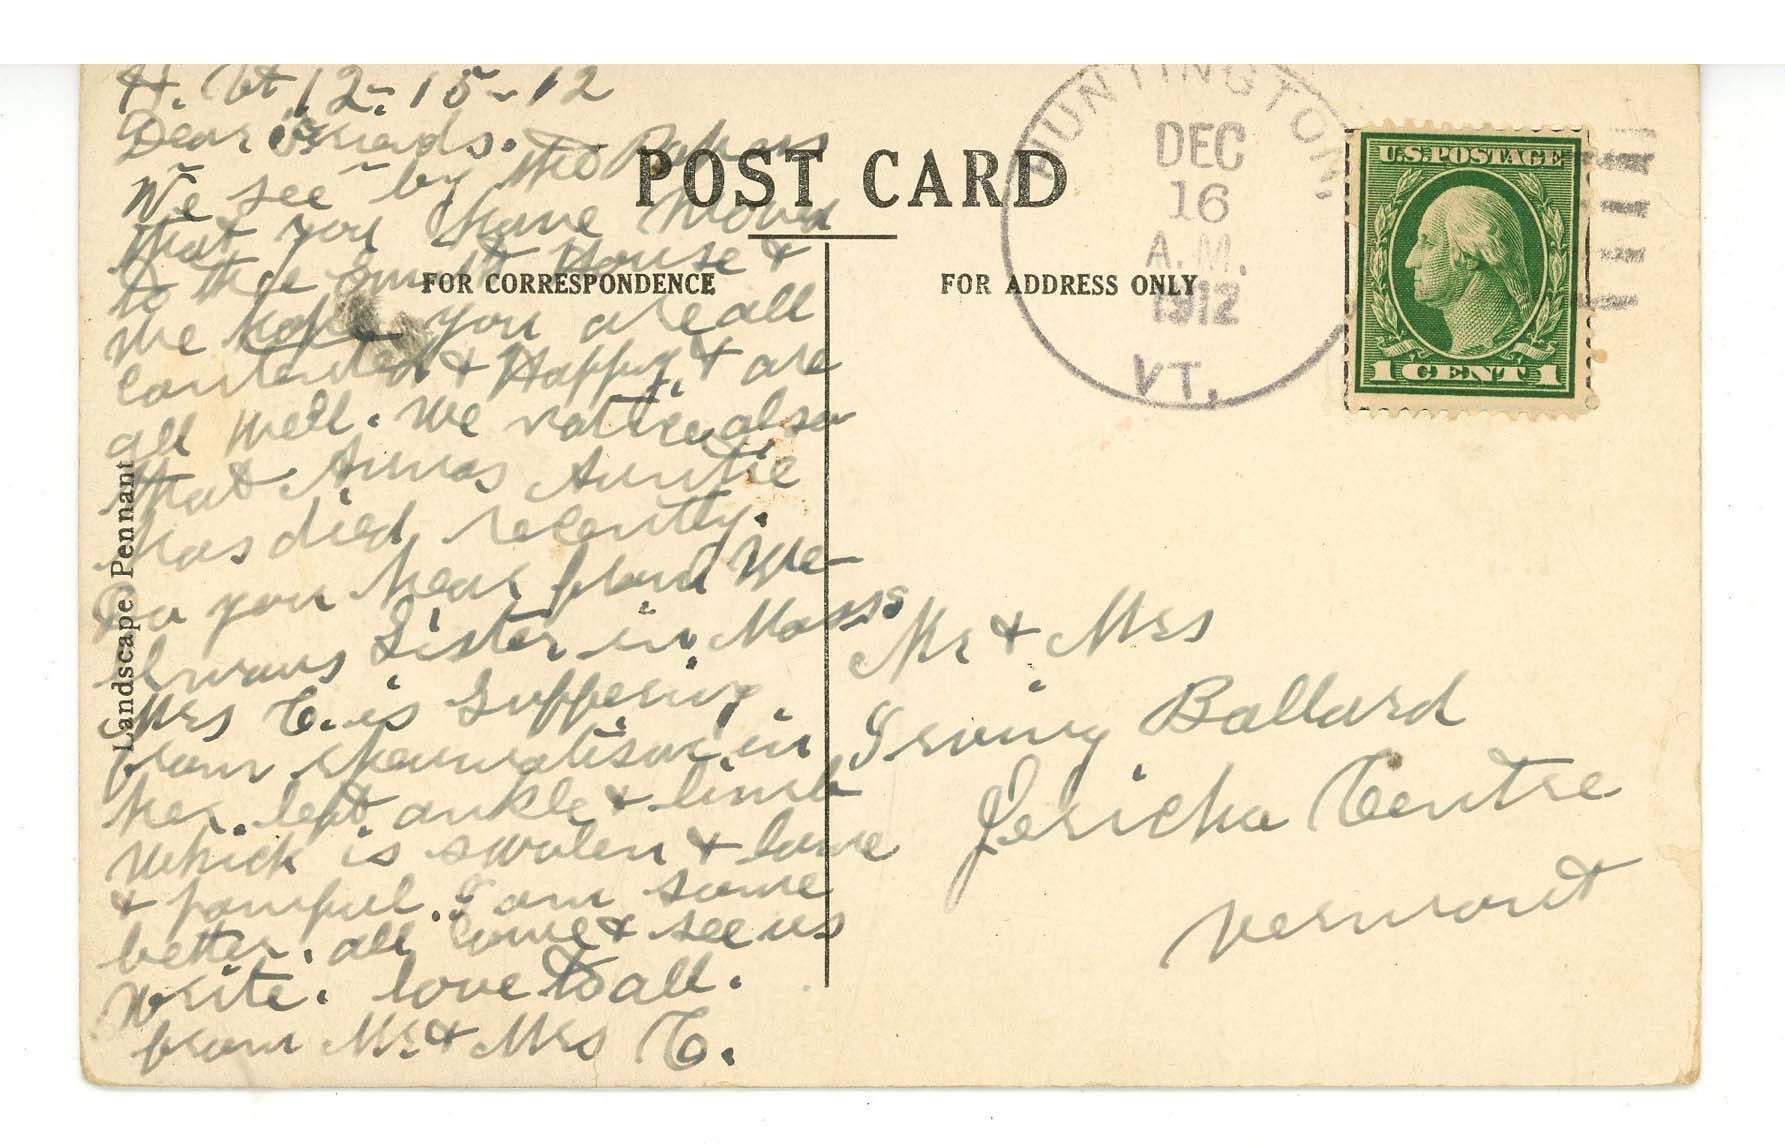 H. Vt 12-15-12
Dear Friends.
We see by the Papers
that you have moved
to the Smith House &
We hope you are all
contented & Happy, & are
all well. We notice also
that Annas Auntie
has died recently.
Do you hear from We
Sister in Mass
Mrs C. is Suffering
from rheumatism in
her left ankle & limb
which is swolen & lame
& painful. I am some
better. all come & see us
write. love to all.
from Mr & Mrs C.
Landscape Pennant
POST CARD
FOR CORRESPONDENCE
FOR ADDRESS ONLY
HUNTINGTON,
DEC
16
A.M.
1912
VT.
U.S. POSTAGE
1 CENT 1
Mr & Mrs
Irving Ballard
Jericho Centre
Vermont